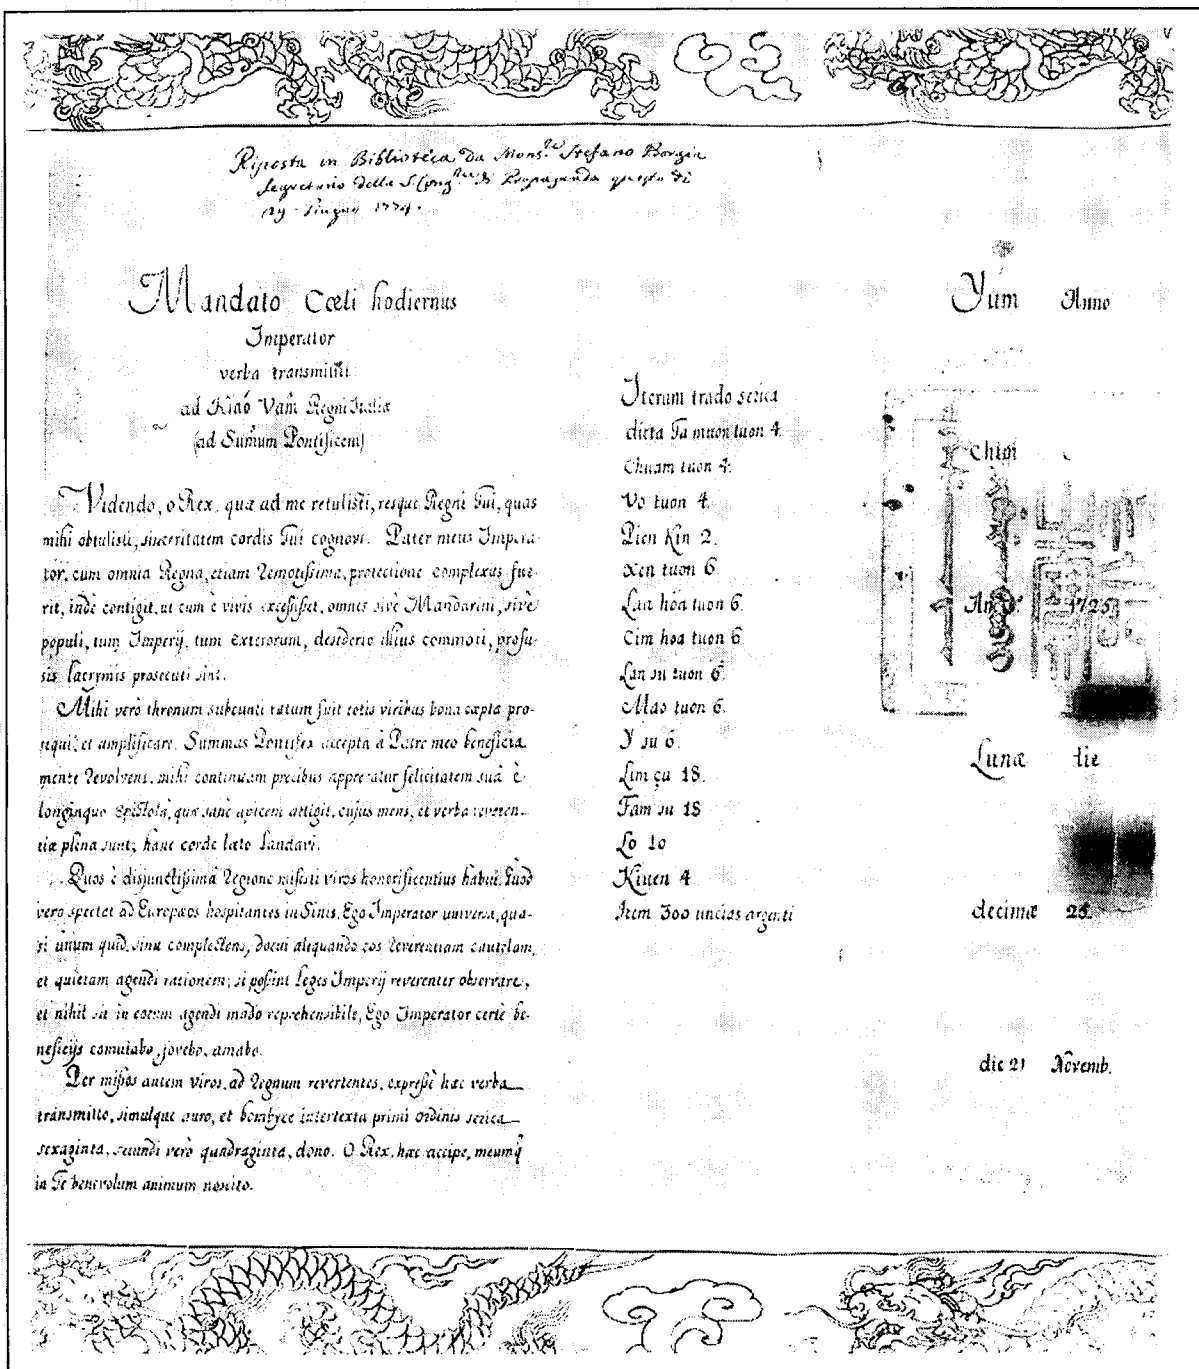 Riposta in Biblioteca da Mons.re Stefano Borgia
Segretario della S. Cong.ne di Propaganda questo di
29 Giugno 1774.
Mandato Cœli hodiernus
Imperator
verba transmittit
ad Kiáo Vam̃ Regni Italiæ
(ad Sum̃um Pontificem)
Videndo, o Rex, quæ ad me retulisti, resque Regni Tui, quas
mihi obtulisti, sinceritatem cordis Tui cognovi. Pater meus Impera-
tor, cum omnia Regna, etiam remotissima, protectione complexus fue-
rit, indè contigit, ut cum è vivis excessisset, omnes sivè Mandarini, sivè
populi, tum Imperij, tum exterorum, desiderio illius commoti, profu-
sis lacrymis prosecuti sint.
Mihi verò thronum subeunti ratum fuit totis viribus bona cæpta pro-
sequi, et amplificare. Summus Pontifex accepta à Patre meo beneficia
mente revolvens, mihi continuam precibus apprecatur felicitatem suâ è
longinquo epistolâ, quæ sanè apicem attigit, cujus mens, et verba reveren-
tiæ plena sunt; hanc corde læto laudavi.
Quos è disjunctissimâ regione misisti viros honorificentius habui. Quod
vero spectat ad Europæos hospitantes in Sinis, Ego Imperator universa, qua-
si unum quid, sinu complectens, docui aliquando eos reverentiam cautelam,
et quietam agendi rationem; si possint leges Imperij reverenter observare,
et nihil sit in eorum agendi modo reprehensibile, Ego Imperator certè be-
neficijs comutabo, fovebo, amabo.
Per missos autem viros, ad regnum revertentes, expressè hæc verba
transmitto, simulque auro, et bombyce intertexta primi ordinis serica
sexaginta, secundi verò quadraginta, dono. O Rex, hæc accipe, meumq̃
in Te benevolum animum noscito.
Iterum trado serica
dicta Ta muon tuon 4.
Chuam tuon 4.
Vo tuon 4.
Pien Kin 2.
Xen tuon 6.
Lan hoa tuon 6.
Cim hoa tuon 6.
Lan su tuon 6.
Mao tuon 6.
Y su 6.
Lim çu 18.
Fam su 18
Lo 10
Kiuen 4.
Item 300 uncias argenti
Yum Anno
Chim
1725
Lunæ die
decimæ 25.
die 21 Novemb.